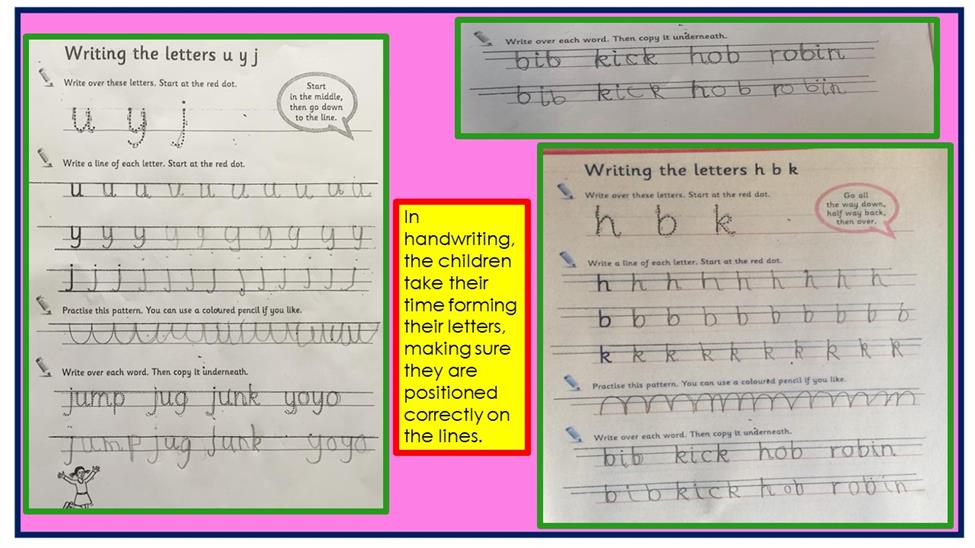 Writing the letters u y j
Write over these letters. Start at the red dot.
u y j
Start
in the middle,
then go down
to the line.
Write a line of each letter. Start at the red dot.
u u u u u u u u u u
y y y y y y y y y y
j j j j j j j j j j j
Practise this pattern. You can use a coloured pencil if you like.
Write over each word. Then copy it underneath.
jump jug junk yoyo
jump jug junk yoyo
In
handwriting,
the children
take their
time forming
their letters,
making sure
they are
positioned
correctly on
the lines.
Write over each word. Then copy it underneath.
bib kick hob robin
bib kick hob robin
Writing the letters h b k
Write over these letters. Start at the red dot.
h b k
Go all
the way down,
half way back,
then over.
Write a line of each letter. Start at the red dot.
h h h h h h h h h
b b b b b b b b b b
k k k k k k k k k k
Practise this pattern. You can use a coloured pencil if you like.
Write over each word. Then copy it underneath.
bib kick hob robin
bib kick hob robin